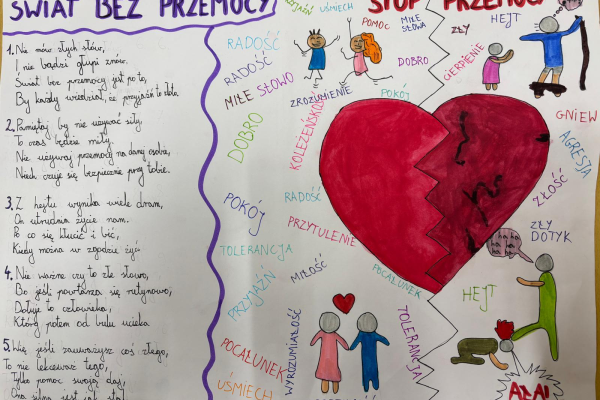 ŚWIAT BEZ PRZEMOCY
1. Nie mów złych słów,
I nie bądźi głupi znów.
Świat bez przemocy jest po to,
By każdy wiedział, że przyjaźń to złoto.
2. Pamiętaj by nie używać siły,
To czas będzie miły.
Nie używaj przemocy na danej osobie,
Niech czuje się bezpiecznie przy tobie.
3. Z hejtu wynika wiele dram,
On utrudnia życie nam.
Po co się kłucić i bić,
Kiedy można w zgodzie żyć
4. Nie ważne czy to złe słowo,
Bo jeśli powtarza się rutynowo,
Dotyje to człowieka,
Który potem od ludu ucieka.
5. Więc jeśli zauważysz coś złego,
To nie lekceważ tego,
Tylko pomoc swoją daj,
STOP PRZEMOCY
UŚMIECH
POMOC
MIŁE
SŁOWA
RADOŚĆ
RADOŚĆ
MIŁE SŁOWO
DOBRO
ZROZUMIENIE
POKÓJ
DOBRO
KOLEŻEŃSKOŚĆ
POKÓJ
RADOŚĆ
PRZYTULENIE
TOLERANCJA
MIŁOŚĆ
PRZYJAŹŃ
POCAŁUNEK
WYROZUMIAŁOŚĆ
TOLERANCJA
POCAŁUNEK
UŚMIECH
ZŁY
HEJT
CIERPIENIE
GNIEW
AGRESJA
ZŁOŚĆ
ZŁY
DOTYK
ha ha
ha ha
HEJT
AŁA!